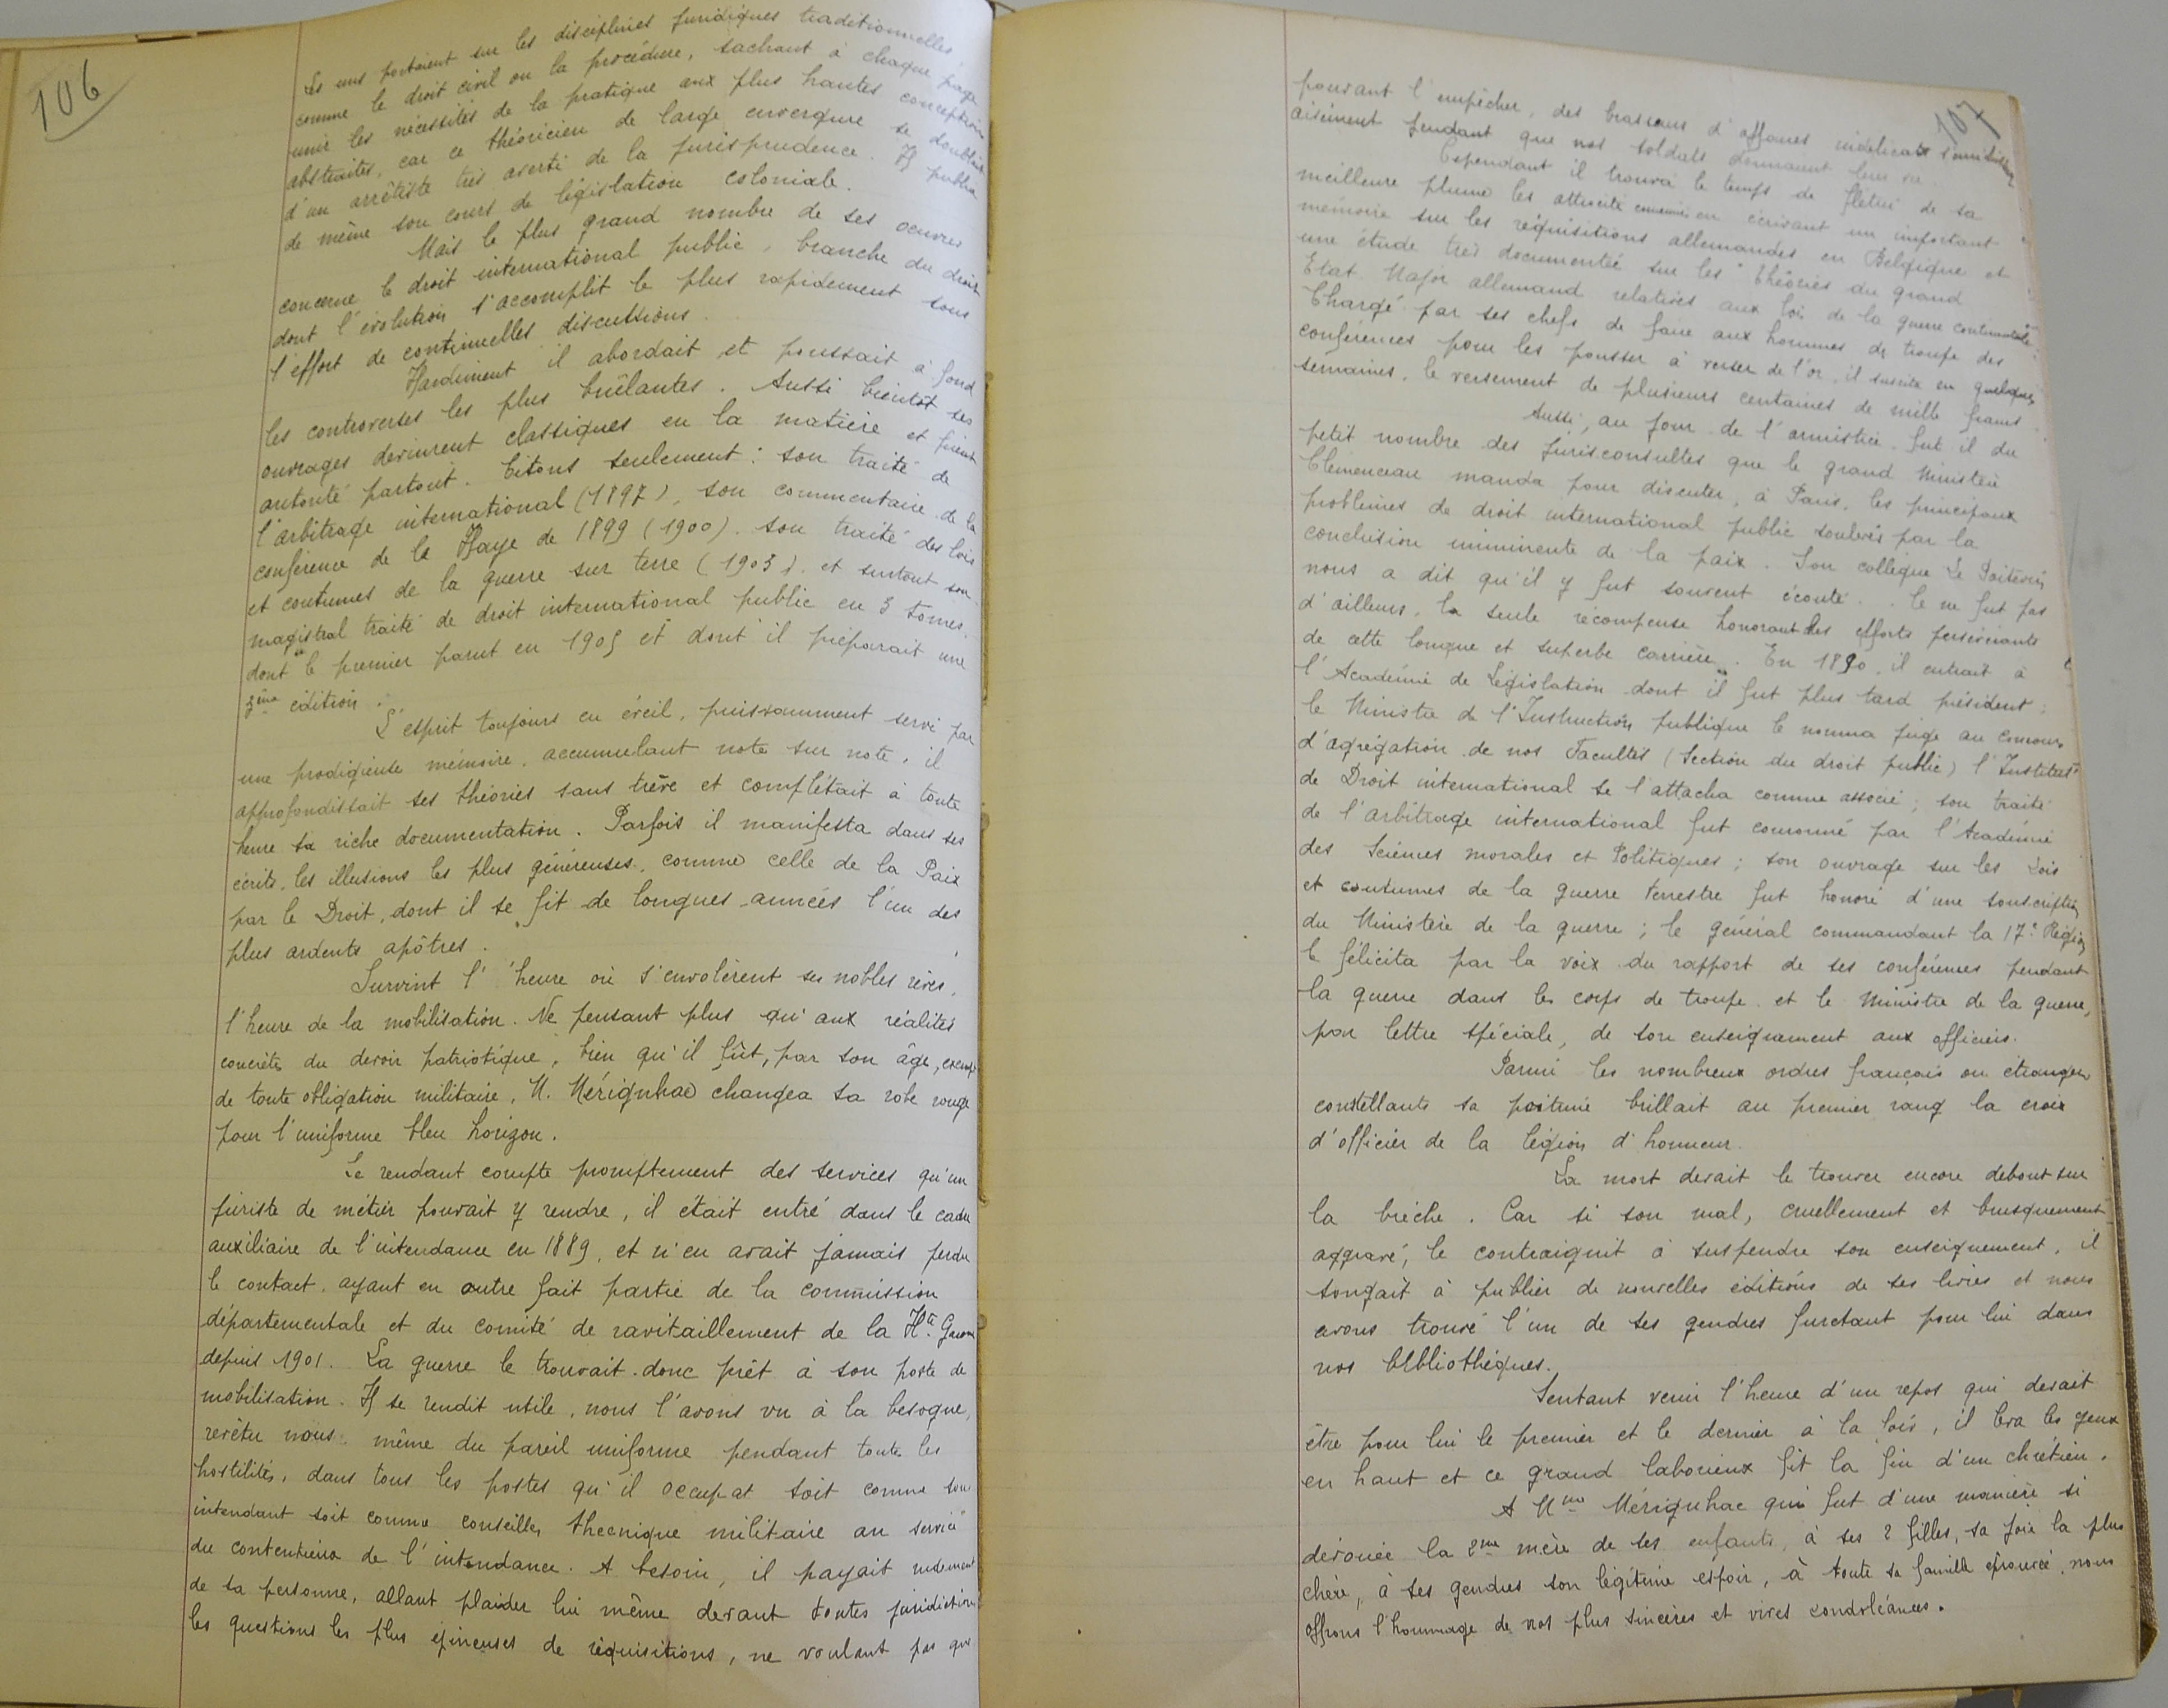 106
Les uns portaient sur les disciplines juridiques traditionnelles,
comme le droit civil ou la procédure, sachant à chaque page
unir les nécessités de la pratique aux plus hautes conceptions
abstraites, car ce théoricien de large envergure se doublait
d'un arrêtiste très averti de la jurisprudence. Il publia
de même son cours de législation coloniale.
Mais le plus grand nombre de ses oeuvres
concerne le droit international public, branche du droit
dont l'évolution s'accomplit le plus rapidement sous
l'effort de continuelles discussions.
Hardiment il abordait et poussait à fond
les controverses les plus brûlantes. Aussi bientôt ses
ouvrages devinrent classiques en la matière et firent
autorité partout. Citons seulement : son traité de
l'arbitrage international (1897), son commentaire de la
conférence de la Haye de 1899 (1900). son traité des lois
et coutumes de la guerre sur terre (1903). et surtout son
magistral traité de droit international public en 3 tomes,
dont le premier parut en 1905 et dont il préparait une
2ème édition.
L'esprit toujours en éveil, puissamment servi par
une prodigieuse mémoire, accumulant note sur note, il
approfondissait ses théories sans trêve et complétait à toute
heure sa riche documentation. Parfois il manifesta dans ses
écrits, les illusions les plus généreuses, comme celle de la Paix
par le Droit, dont il se fit de longues années l'un des
plus ardents apôtres.
Survint l'heure où s'envolèrent ses nobles rêves,
l'heure de la mobilisation. Ne pensant plus qu'aux réalités
concrètes du devoir patriotique, bien qu'il fût, par son âge, exempt
de toute obligation militaire, M. Mérignhac changea sa robe rouge
pour l'uniforme bleu horizon.
Se rendant compte promptement des services qu'un
juriste de métier pouvait y rendre, il était entré dans le cadre
auxiliaire de l'intendance en 1889, et n'en avait jamais perdu
le contact. ayant en outre fait partie de la commission
départementale et du comité de ravitaillement de la Hte. Garonne
depuis 1901. La guerre le trouvait donc prêt à son poste de
mobilisation. Il se rendit utile, nous l'avons vu à la besogne,
revêtu nous même du pareil uniforme pendant toute les
hostilités, dans tous les postes qu'il occupat soit comme sous
intendant soit comme conseiller thecnique militaire au service
du contentieux de l'intendance. A besoin, il payait rudement
de sa personne, allant plaider lui même devant toutes juridictions
les questions les plus épineuses de réquisitions, ne voulant pas que
107
pouvant l'empêcher, des brasseurs d'affaires indélicats
aisément pendant que nos soldats donnaient leur vie.
Cependant il trouva le temps de flétrir de sa
meilleure plume les atrocité ennemies en écrivant un important
mémoire sur les réquisitions allemandes en Belgique et
une étude très documentée sur les "théories du grand
Etat Major allemand relatives aux lois de la guerre continentale".
Chargé par ses chefs de faire aux hommes de troupe des
conférences pour les pousser à verser de l'or, il suscita en quelques
semaines, le versement de plusieurs centaines de mille francs.
Aussi, au jour de l'armistice. fut il du
petit nombre des jurisconsultes que le grand Ministère
Clémenceau manda pour discuter, à Paris, les principaux
problèmes de droit international public soulevés par la
conclusion imminente de la paix. Son collègue Le Poitevin
nous a dit qu'il y fut souvent écouté. Ce ne fut pas
d'ailleurs, la seule récompense honorant les efforts persévérants
de cette longue et superbe carrière. En 1890, il entrait à
l'Académie de Législation dont il fut plus tard président ;
le Ministre de l'Instruction publique le nomma juge au concours
d'agrégation de nos Facultés (Section du droit public) l'Institut
de Droit international se l'attacha comme associé ; son traité
de l'arbitrage international fut couronné par l'Académie
des Sciences morales et Politiques ; son ouvrage sur les Lois
et coutumes de la guerre terrestre fut honoré d'une souscription
du Ministère de la guerre ; le général commandant la 17e Région
le félicita par la voix du rapport de ses conférences pendant
la guerre dans les corps de troupe et le Ministre de la guerre,
par lettre spéciale, de son enseignement aux officiers.
Parmi les nombreux ordres français ou étrangers
constellants sa poitrine brillait au premier rang la croix
d'officier de la légion d'honneur.
La mort devait le trouver encore debout sur
la brèche. Car si son mal, cruellement et brusquement
aggravé, le contraignit à suspendre son enseignement, il
songait à publier de nouvelles éditions de ses livres et nous
avons trouvé l'un de ses gendres furetant pour lui dans
nos bibliothèques.
Sentant venir l'heure d'un repos qui devait
être pour lui le premier et le dernier à la fois, il leva les yeux
en haut et ce grand laborieux fit la fin d'un chrétien.
A Mme Mérignhac qui fut d'une manière si
dévouée la 2me mère de ses enfants, à ses 2 filles, sa joie la plus
chère, à ses gendres son légitime espoir, à toute sa famille éprouvée, nous
offrons l'hommage de nos plus sincères et vives condoléances.